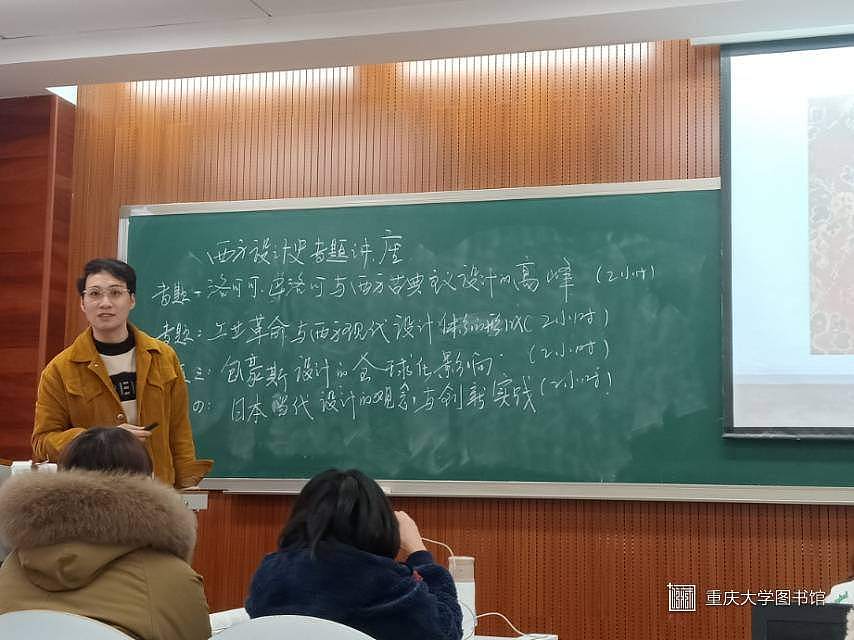 西方设计史专题讲座
专题一洛可可.巴洛可与西方古典主义设计的高峰(2小时)
专题二:工业革命与西方现代设计体系的形成(2小时)
三:包豪斯设计的全球化影响.(2小时)
四:日本当代设计的观念与创新实践(2小时)
重庆大学图书馆